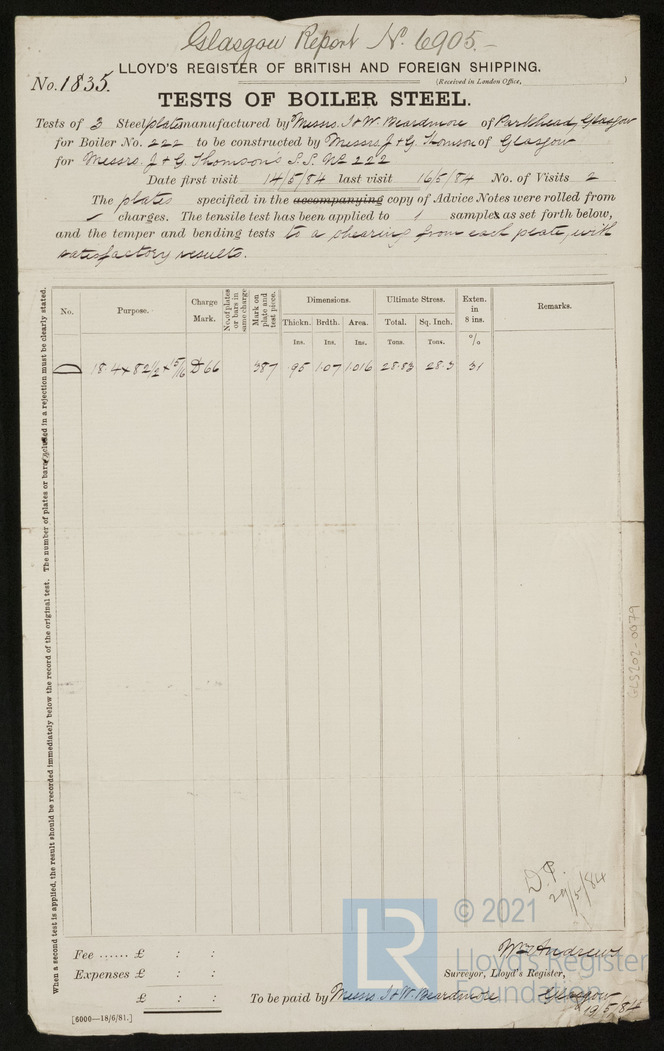 Glasgow Report No. 6905.
LLOYD'S REGISTER OF BRITISH AND FOREIGN SHIPPING.
No. 1835.
(Received in London Office, )
TESTS OF BOILER STEEL.
Tests of 3 Steel plates manufactured by Messrs. I & W. Beardmore of Parkhead, Glasgow
for Boiler No. 222 to be constructed by Messrs J & G. Thomson of Glasgow
for Messrs. J & G. Thomson's S.S. No 222
Date first visit 14/5/84 last visit 16/5/84 No. of Visits 2
The plates specified in the accompanying copy of Advice Notes were rolled from
charges. The tensile test has been applied to 1 samples as set forth below,
and the temper and bending tests to a shearing from each plate, with
satisfactory results.
No. Purpose. Charge Mark. No. of plates or bars in same charge Mark on plate and test piece. Dimensions. Ultimate Stress. Exten. in 8 ins. Remarks.
Thickn. Brdth. Area. Total. Sq. Inch.
Ins. Ins. Ins. Tons. Tons. %
18.4 x 82½ x 15/16 D 66 387 .95 1.07 1.016 28.83 28.3 31
When a second test is applied, the result should be recorded immediately below the record of the original test. The number of plates or bars included in a rejection must be clearly stated.
D.P.
29/5/84
Fee ...... £ : :
Expenses £ : :
£ : :
Wm Andrews
Surveyor, Lloyd's Register,
To be paid by Messrs I & W. Beardmore Glasgow
19/5/84
[6000—18/6/81.]
LR
© 2021
Lloyd's Register
Foundation